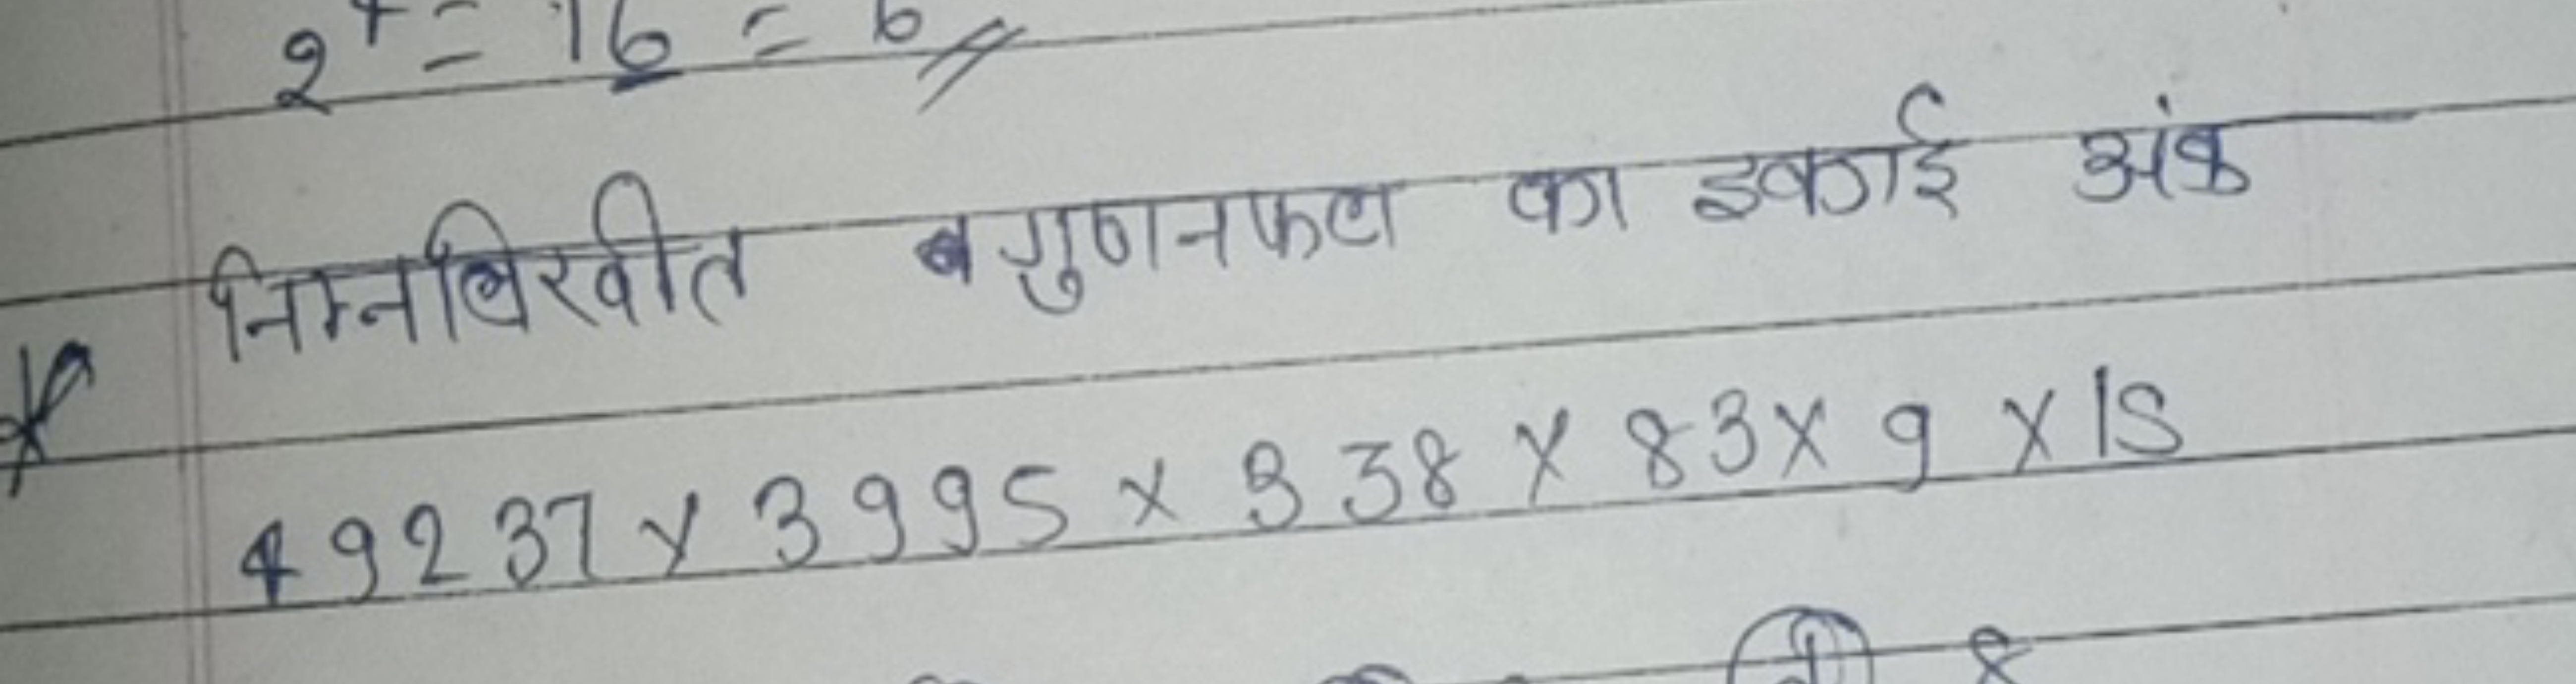 2⁴ = 16 = 6
निम्नलिखीत गुणनफल का इकाई अंक
49237 x 3995 x 338 x 83 x 9 x 15